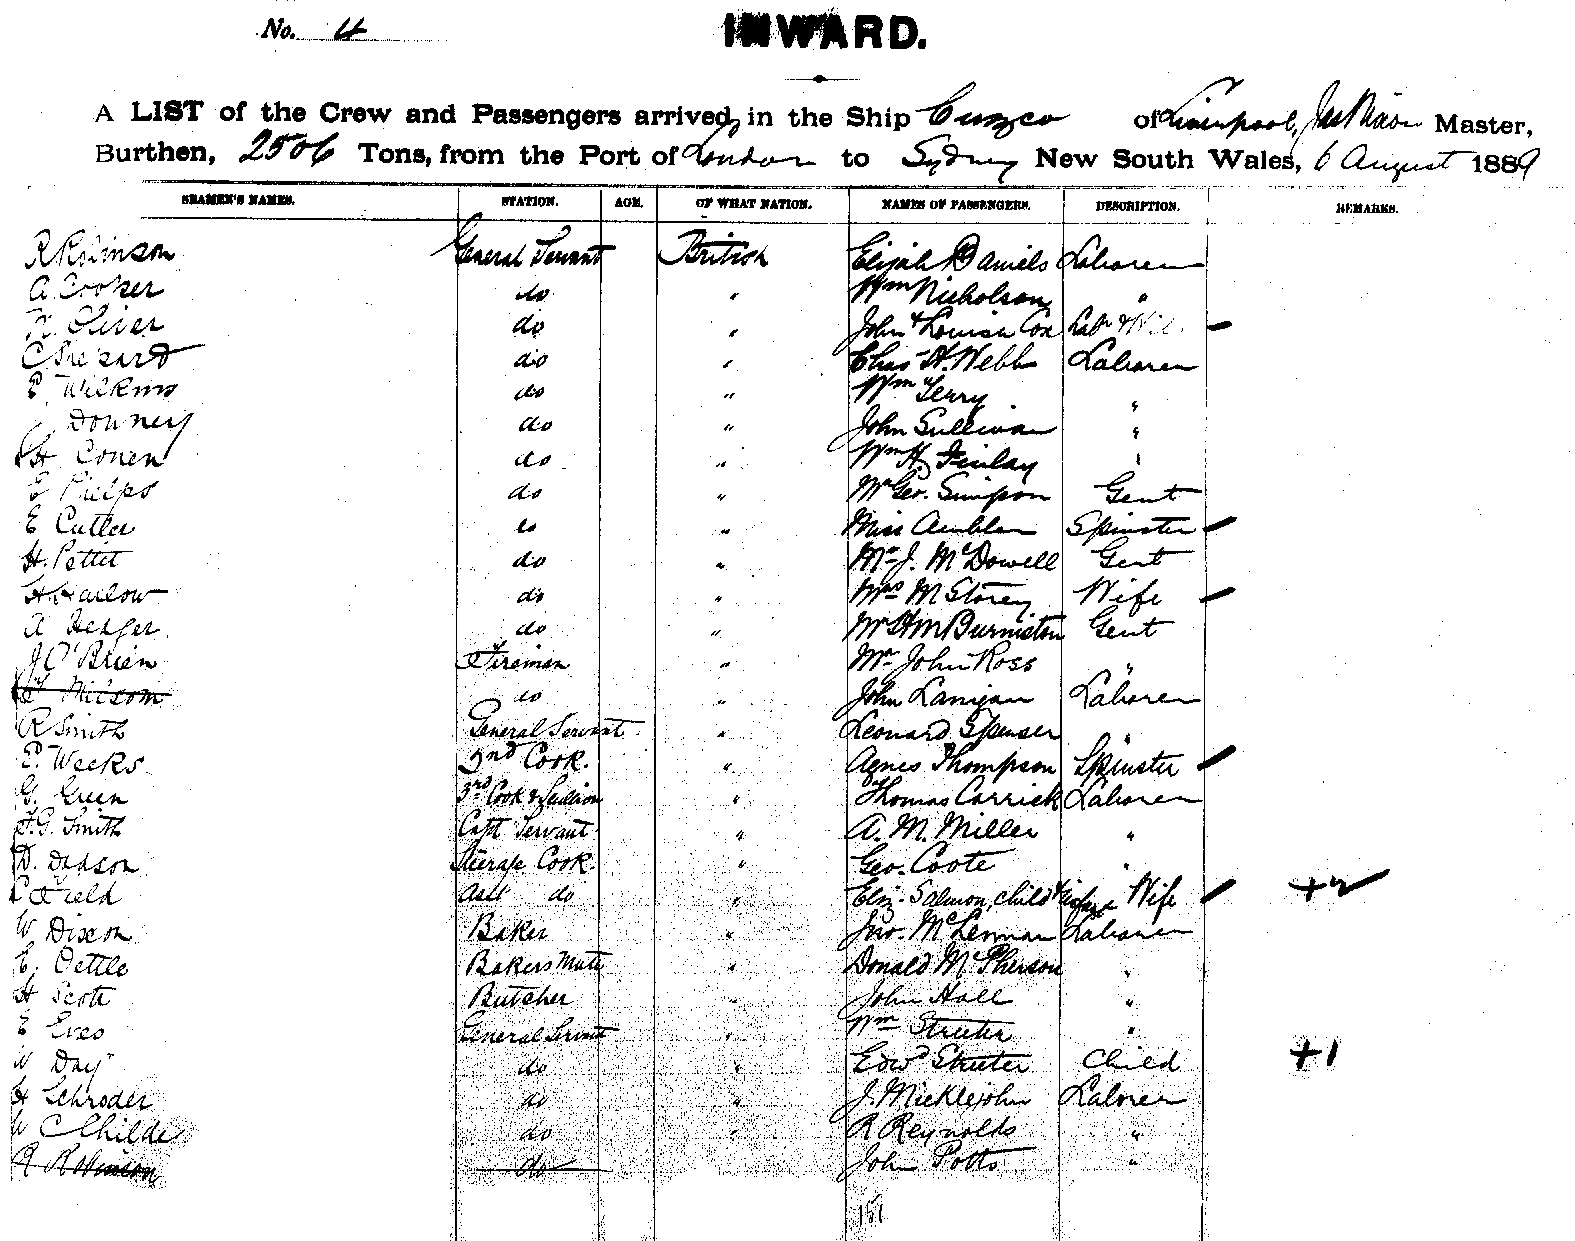 No. 4
INWARD.
A LIST of the Crew and Passengers arrived in the Ship Cuzco of Liverpool, Jas Nixon Master,
Burthen, 2506 Tons, from the Port of London to Sydney New South Wales, 6 August 1889
SEAMEN'S NAMES. STATION. AGE. OF WHAT NATION. NAMES OF PASSENGERS. DESCRIPTION. REMARKS.
R Robinson General Servant British Elijah Daniels Laborer
A. Cooker do " Wm Nicholson "
Oliver do " John & Louisa Cox Labr & Wife
C Shepard do " Chas H. Webb Laborer
E. Wilkins do " Wm Terry "
Downey do " John Sullivan "
H Conen do " Wm H. Finlay "
E Phelps do " Mr Geo. Simpson Gent
E Cutler do " Miss Ambler Spinster
H. Pettet do " Mr J. McDowell Gent
H Harlow do " Mrs M Storey Wife
A Hedger do " Mr H M Burniston Gent
J O'Brien Fireman " Mr John Ross "
Milsom do " John Lanigan Laborer
R Smith General Servant " Leonard Spenser "
E. Weeks 2nd Cook. " Agnes Thompson Spinster
G. Green 3rd Cook & Scullion " Thomas Carrick Laborer
F. G. Smith Capt Servant " A. M. Miller "
D. Dodson Steerage Cook " Geo. Coote "
C Field Asst do Eliz. Salmon, child & infant Wife +2
W Dixon Baker " Jno. McLennan Laborer
E. Pettle Bakers Mate " Donald McPherson "
H Scott Butcher " John Hall "
E Eves General Servant " Wm Streeter "
W Day do " Edwd Streeter Child +1
H Schroder do " J. Micklejohn Laborer
W Childe do " R Reynolds "
R Robinson do John Potts "